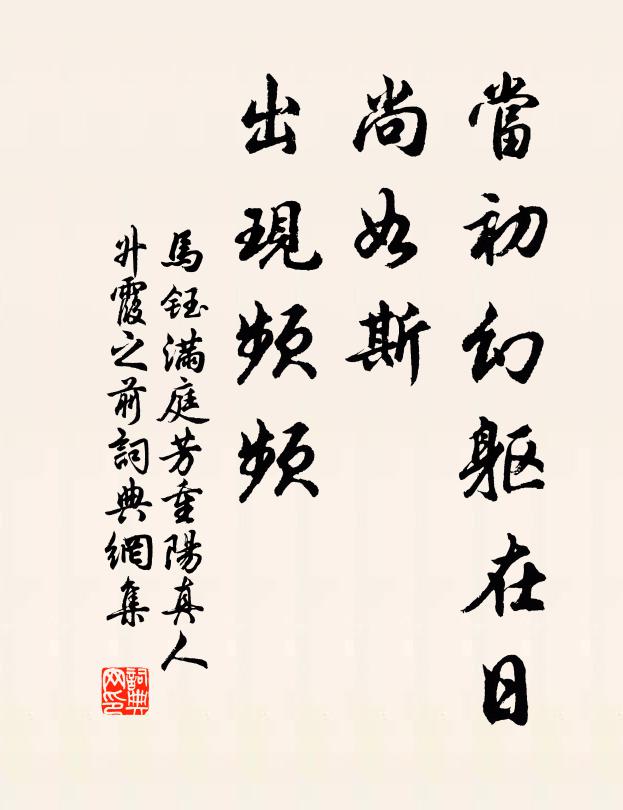 當初幻軀在日
尚如斯
出現頻頻
馬鈺滿庭芳重陽真人
升霞之前詞典網集
詞典網印